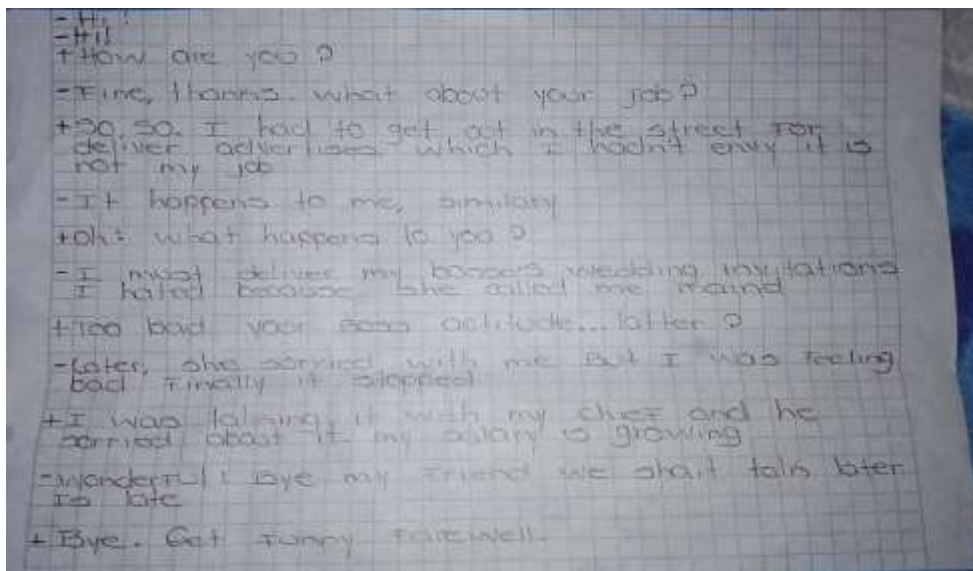 - Hi!
- Hi!
+ How are you?
- Fine, thanks. what about your job?
+ So, so. I had to get out in the street for
deliver advertises which I hadn't envy it is
not my job
- It happens to me, similary
+ Oh! what happens to you?
- I must deliver my bosses wedding invitations
I hated because she called me
+ Too bad your boss actitude... latter?
- Later, she sorried with me But I was feeling
bad Finally it stopped
+ I was talking it with my chief and he
sorried about it my salary is growing
- Wonderful! Bye my friend we shall talk later
Is late
+ Bye. Get funny farewell.